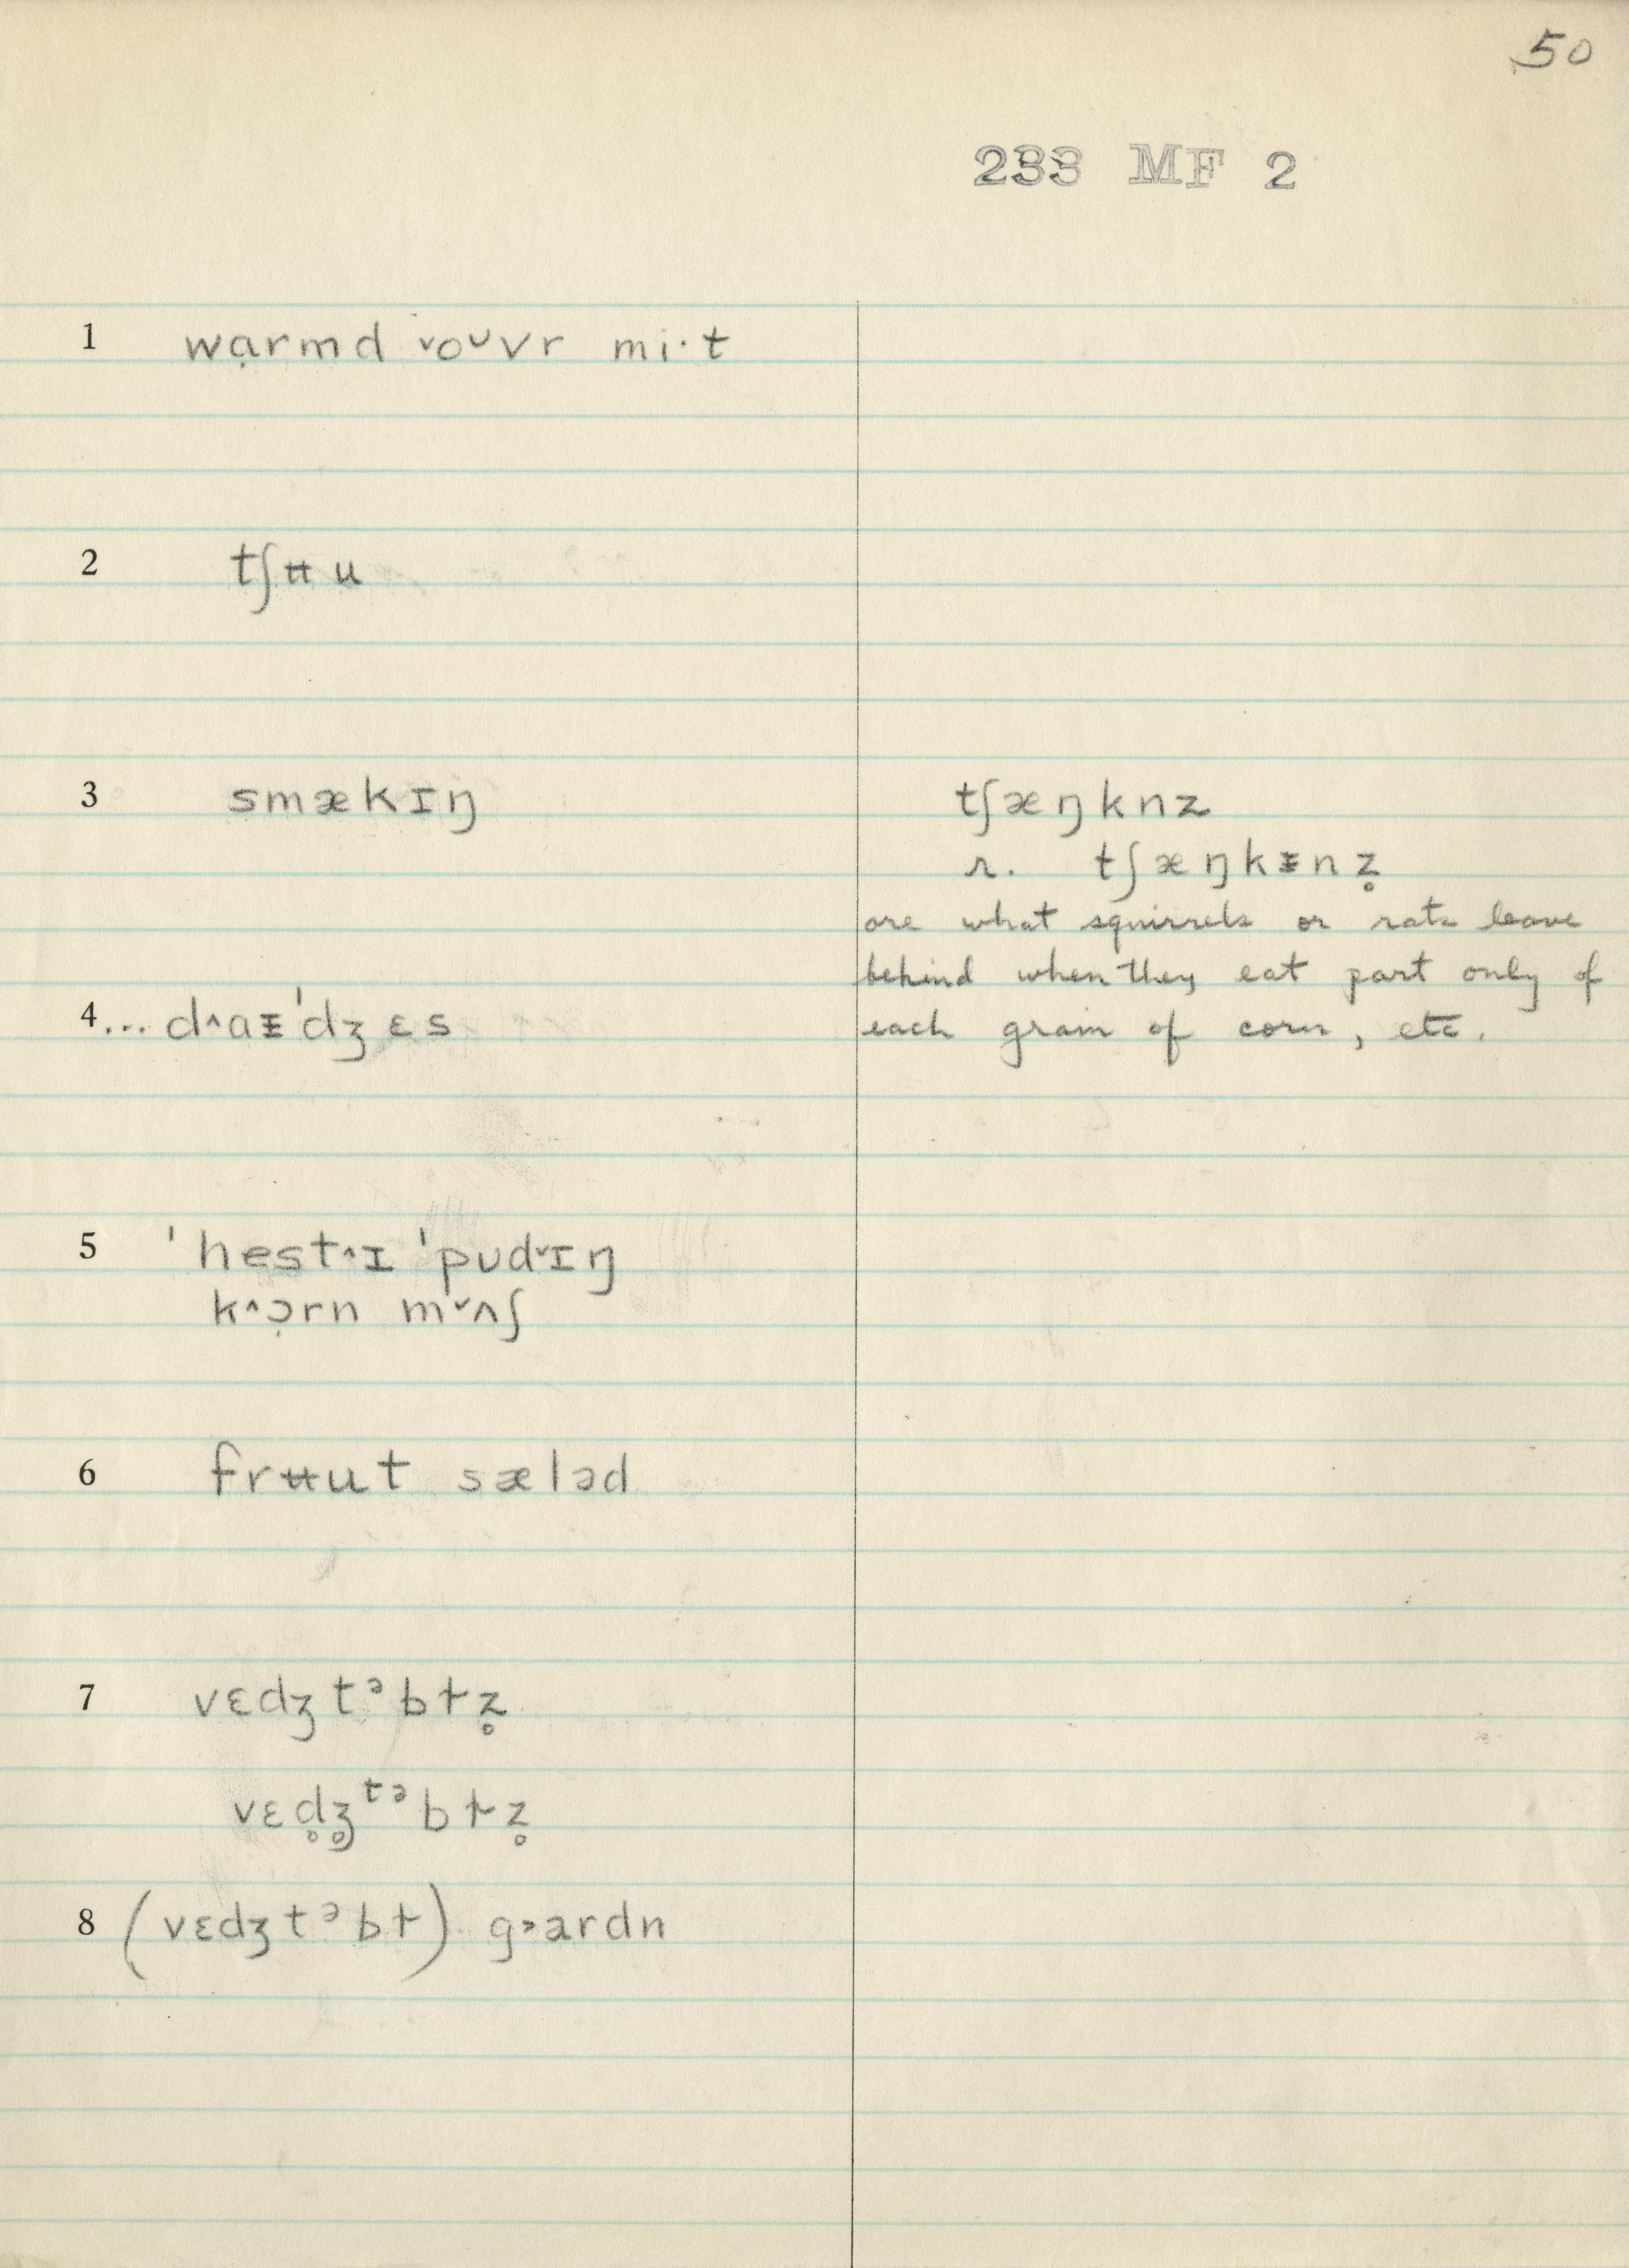 50
233 MF 2
1 wɑ̣rmd ˅oᴜvr mi·t
2 tʃʉu
3 smækɪŋ
tʃæŋknz
r. tʃæŋkᵻnz̥
are what squirrels or rats leave
behind when they eat part only of
each grain of corn, etc.
4 ... d˄aᵻˈdʒɛs
5 ˈhest˄ɪ ˈpʊd˅ɪŋ
k˄ɔ̣rn m˅ʌʃ
6 frʉut sæləd
7 vɛdʒtᵊbɫz̥
vɛd̥ʒ̥ᵗᵊbɫz̥
8 (vɛdʒtᵊbɫ) g˃ardn